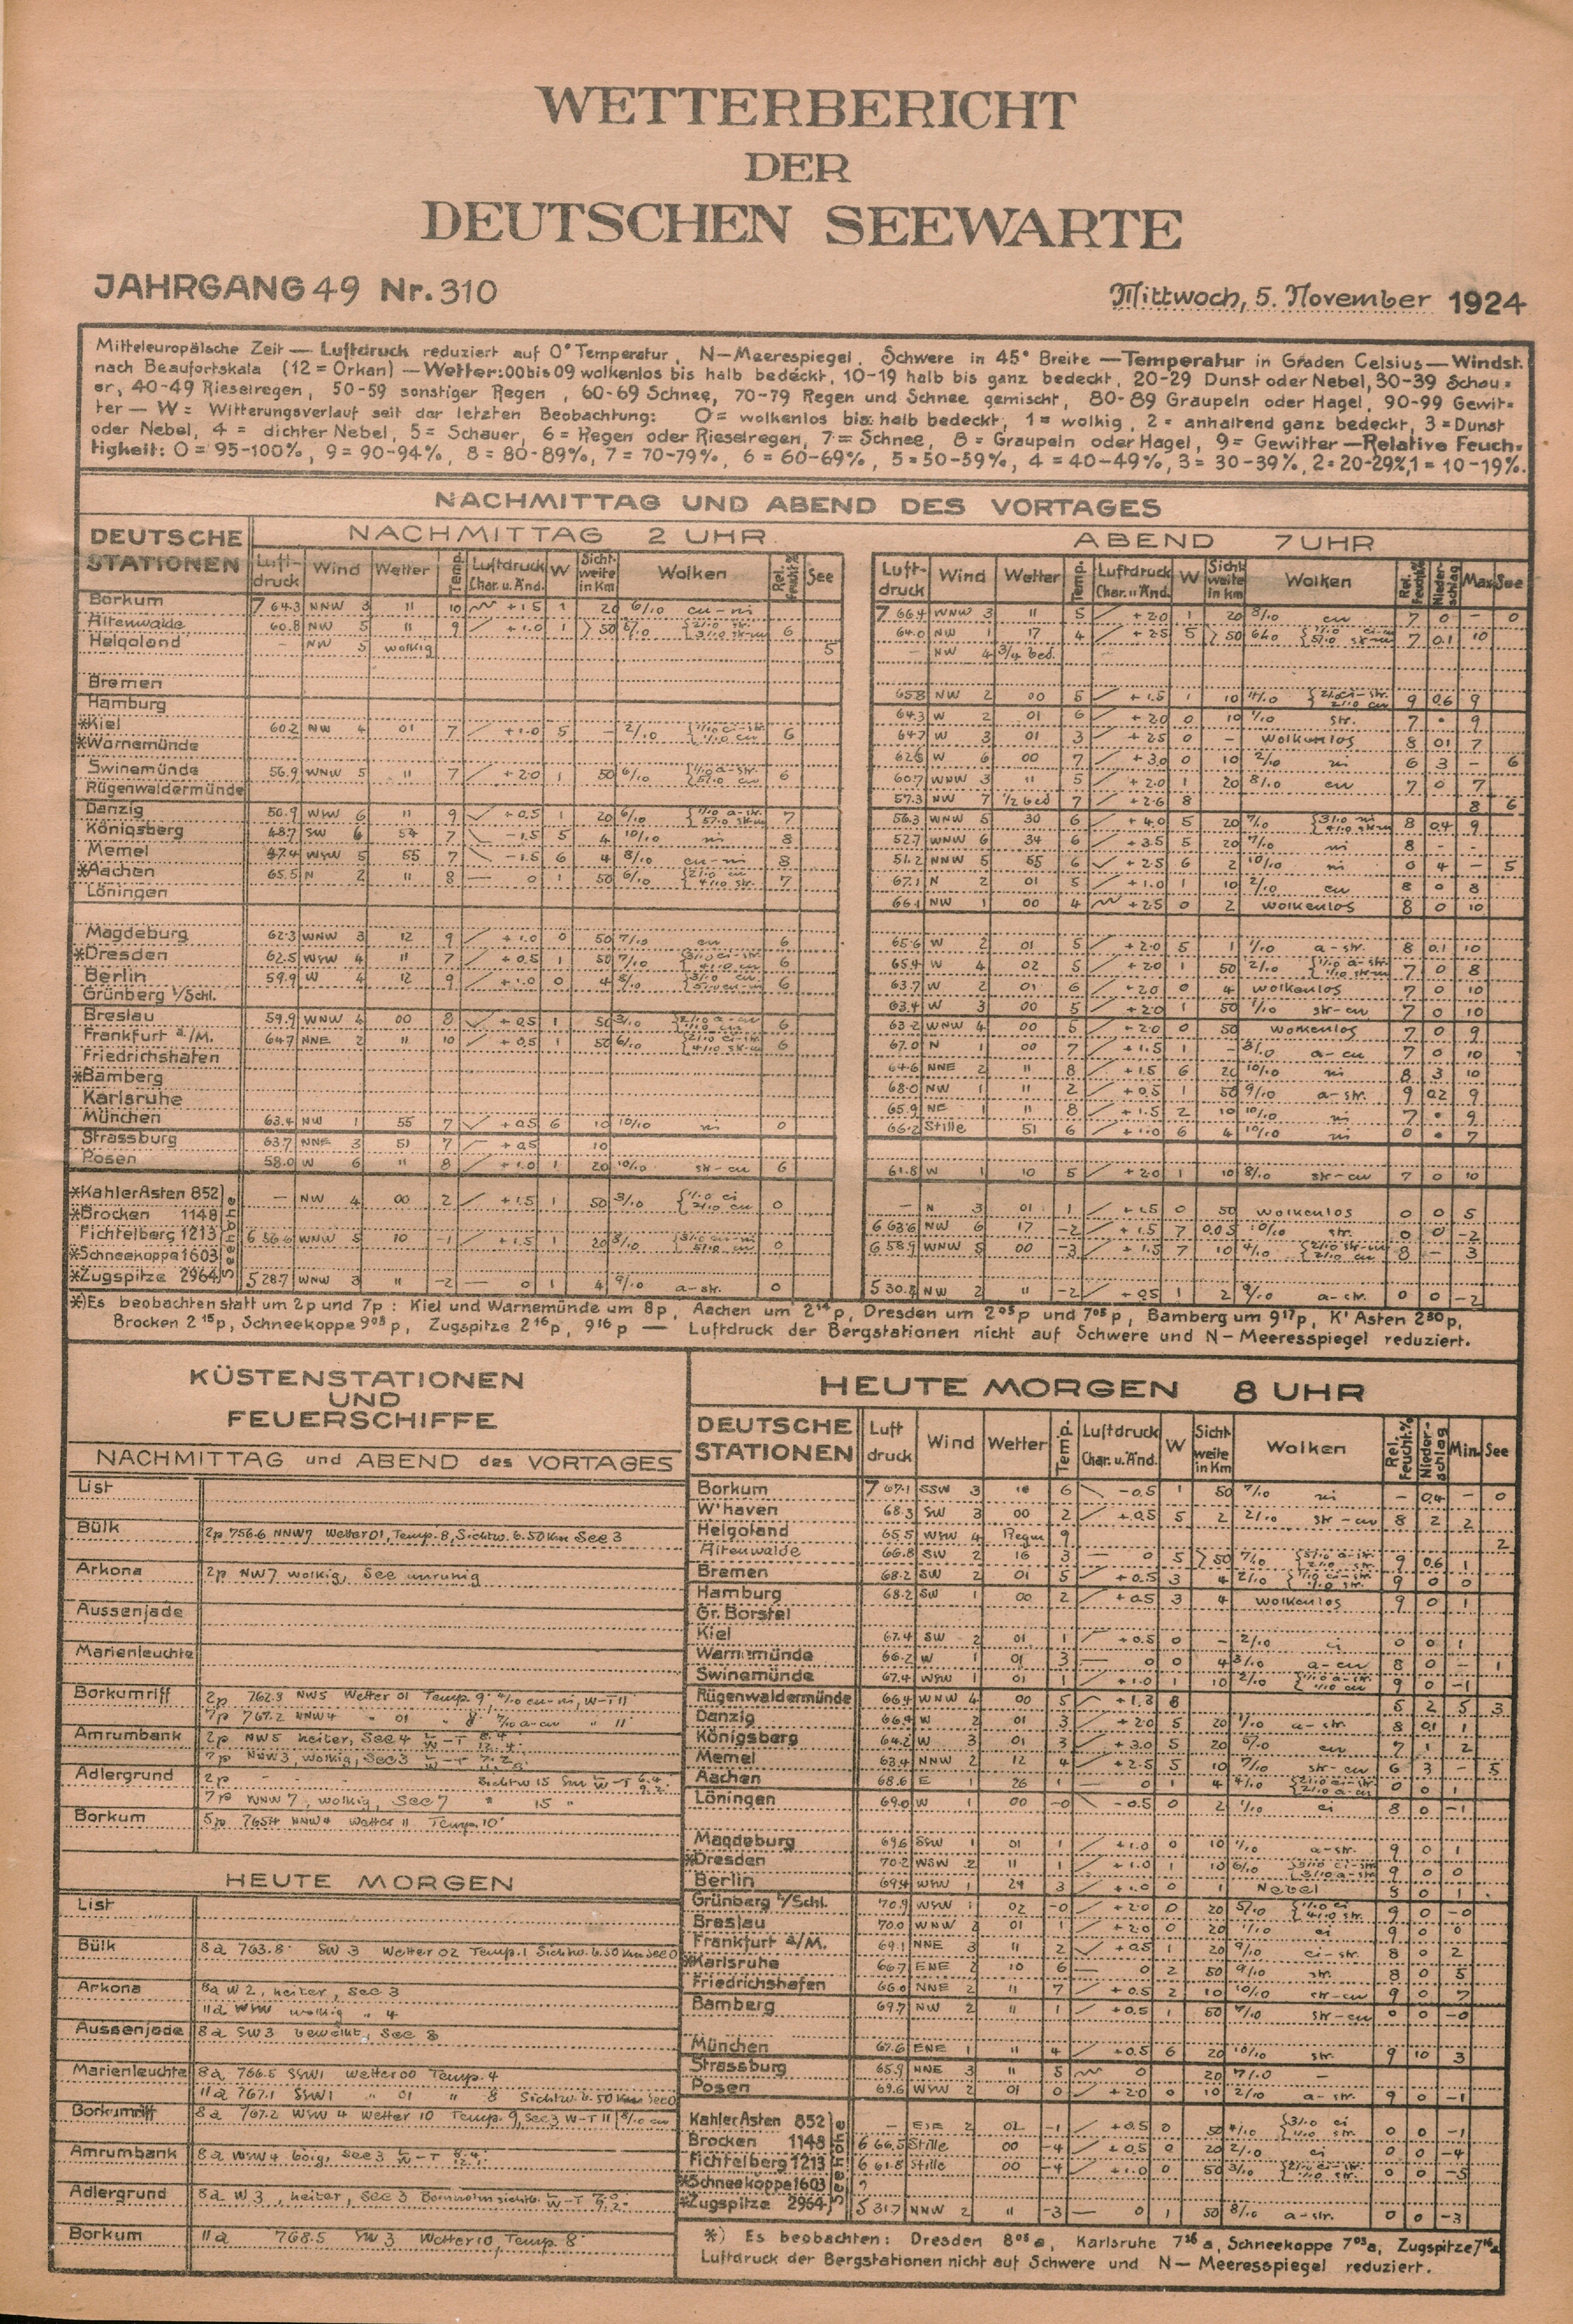 WETTERBERICHT
DER
DEUTSCHEN SEEWARTE
JAHRGANG 49 Nr. 310
Mittwoch, 5. November 1924
Mitteleuropäische Zeit — Luftdruck reduziert auf 0° Temperatur, N—Meerespiegel, Schwere in 45° Breite — Temperatur in Graden Celsius — Windst.
nach Beaufortskala (12 = Orkan) — Wetter: 00 bis 09 wolkenlos bis halb bedeckt, 10-19 halb bis ganz bedeckt, 20-29 Dunst oder Nebel, 30-39 Schau-
er, 40-49 Rieselregen, 50-59 sonstiger Regen, 60-69 Schnee, 70-79 Regen und Schnee gemischt, 80-89 Graupeln oder Hagel, 90-99 Gewit-
ter — W = Witterungsverlauf seit der letzten Beobachtung: 0 = wolkenlos bis halb bedeckt, 1 = wolkig, 2 = anhaltend ganz bedeckt, 3 = Dunst
oder Nebel, 4 = dichter Nebel, 5 = Schauer, 6 = Regen oder Rieselregen, 7 = Schnee, 8 = Graupeln oder Hagel, 9 = Gewitter — Relative Feuch-
tigkeit: 0 = 95-100%, 9 = 90-94%, 8 = 80-89%, 7 = 70-79%, 6 = 60-69%, 5 = 50-59%, 4 = 40-49%, 3 = 30-39%, 2 = 20-29%, 1 = 10-19%.
NACHMITTAG UND ABEND DES VORTAGES
DEUTSCHE STATIONEN
NACHMITTAG 2 UHR
Luftdruck Wind Wetter Temp. Luftdruck Char. u. Änd. W Sichtweite in Km Wolken Rel. Feucht.% See
ABEND 7 UHR
Luftdruck Wind Wetter Temp. Luftdruck Char. u. Änd. W Sichtweite in km Wolken Rel. Feucht.% Niederschlag Max See
Borkum 7 64.3 NNW 3 11 10 +1.5 1 20 6/10 cu-ni
7 66.4 WNW 3 11 5 +2.0 1 20 8/10 cu 7 0 – 0
Altenwalde 60.8 NW 5 11 9 +1.0 1 50 6
64.0 NW 1 17 4 +2.5 5 50 7 0.1 10
Helgoland – NW 5 wolkig 5
– NW 4 3/4 bed.
Bremen
65.8 NW 2 00 5 +1.5 1 10 9 0.6 9
Hamburg
64.3 W 2 01 6 +2.0 0 10 1/10 str. 7 • 9
*Kiel 60.2 NW 4 01 7 +1.0 5 – 2/10 6
64.7 W 3 01 3 +2.5 0 – wolkenlos 8 01 7
*Warnemünde
W 6 00 7 +3.0 0 10 2/10 ni 6 3 – 6
Swinemünde 56.9 WNW 5 11 7 +2.0 1 50 6/10 6
60.7 WNW 3 11 5 +2.0 1 20 8/10 cu 7 0 7
Rügenwaldermünde
57.3 NW 7 1/2 bed 7 +2.6 8 8 6
Danzig 50.9 WNW 6 11 9 +0.5 1 20 6/10 7
56.3 WNW 5 30 6 +4.0 5 20 8 0.4 9
Königsberg 48.7 SW 6 54 7 –1.5 5 4 10/10 ni 8
52.7 WNW 6 34 6 +3.5 5 20 ni 8 – –
Memel 47.4 WSW 5 55 7 –1.5 6 4 8/10 cu-ni 8
51.2 NNW 5 55 6 +2.5 6 2 10/10 ni 0 4 – 5
*Aachen 65.5 N 2 11 8 — 0 1 50 6/10 7
67.1 N 2 01 5 +1.0 1 10 2/10 cu 8 0 8
Löningen
66.1 NW 1 00 4 +2.5 0 2 wolkenlos 8 0 10
Magdeburg 62.3 WNW 3 12 9 +1.0 0 50 7/10 cu 6
65.6 W 2 01 5 +2.0 5 1 1/10 a-str. 8 0.1 10
*Dresden 62.5 WSW 4 11 7 +0.5 1 50 7/10 6
65.4 W 4 02 5 +2.0 1 50 2/10 7 0 8
Berlin 59.9 W 4 12 9 +1.0 0 4 8/10 6
63.7 W 2 01 6 +2.0 0 4 wolkenlos 7 0 10
Grünberg i/Schl.
63.4 W 3 00 5 +2.0 1 50 1/10 str-cu 7 0 10
Breslau 59.9 WNW 4 00 8 +0.5 1 50 3/10 6
63.2 WNW 4 00 5 +2.0 0 50 wolkenlos 7 0 9
Frankfurt a/M. 64.7 NNE 2 11 10 +0.5 1 50 6/10 6
67.0 N 1 00 7 +1.5 1 – 3/10 a-cu 7 0 10
Friedrichshafen
64.6 NNE 2 11 8 +1.5 6 20 10/10 ni 8 3 10
*Bamberg
68.0 NW 1 11 2 +0.5 1 50 9/10 a-str. 9 0.2 9
Karlsruhe
65.9 NE 1 11 8 +1.5 2 10 10/10 ni 7 • 9
München 63.4 NW 1 55 7 +0.5 6 10 10/10 ni 0
66.2 Stille 51 6 +1.0 6 4 10/10 ni 0 • 7
Strassburg 63.7 NNE 3 51 7 +0.5 10
Posen 58.0 W 6 11 8 +1.0 1 20 10/10 str-cu 6
61.8 W 1 10 5 +2.0 1 10 8/10 str-cu 7 0 10
Seehöhe
*Kahler Asten 852 — NW 4 00 2 +1.5 1 50 3/10 0
– N 3 01 1 +1.5 0 50 wolkenlos 0 0 5
*Brocken 1148
6 63.6 NW 6 17 –2 +1.5 7 0.05 10/10 str. 0 0 –2
Fichtelberg 1213 6 56.6 WNW 5 10 –1 +1.5 1 20 8/10 0
6 58.9 WNW 5 00 –3 +1.5 7 10 4/10 8 – 3
*Schneekoppe 1603
*Zugspitze 2964 5 28.7 WNW 3 11 –2 — 0 1 4 9/10 a-str. 0
NW 2 11 –2 +0.5 1 2 9/10 a-str. 0 0 –2
*) Es beobachten statt um 2p und 7p: Kiel und Warnemünde um 8p, Aachen um 2¹⁴p, Dresden um 2⁰⁵p und 7⁰⁵p, Bamberg um 9¹⁷p, K' Asten 2³⁰p,
Brocken 2¹⁵p, Schneekoppe 9⁰³p, Zugspitze 2¹⁶p, 9¹⁶p — Luftdruck der Bergstationen nicht auf Schwere und N–Meeresspiegel reduziert.
KÜSTENSTATIONEN
UND
FEUERSCHIFFE
NACHMITTAG und ABEND des VORTAGES
List
Bülk 2p 756.6 NNW7 Wetter 01, Temp. 8, Sichtw. 6. 50 Km See 3
Arkona 2p NW7 wolkig, See unruhig
Aussenjade
Marienleuchte
Borkumriff 2p 762.8 NW5 Wetter 01 Temp. 9° 4/10 cu-ni, W-T 11°
7p 767.2 NNW4 " 01 " 8° 7/10 a-cu " 11°
Amrumbank 2p NW5 heiter, See 4
7p NNW3, wolkig, See 3
Adlergrund 2p – – Sichtw 15 Sm
7p WNW 7, wolkig, See 7 " 15 "
Borkum 5p 765.4 NNW4 Wetter 11 Temp. 10°
HEUTE MORGEN
List
Bülk 8a 763.8 SW 3 Wetter 02 Temp. 1 Sichtw. 6. 50 Km See 0
Arkona 8a W 2, heiter, See 3
11a WSW wolkig " 4
Aussenjade 8a SW3 bewölkt, See 3
Marienleuchte 8a 766.5 SSW1 Wetter 00 Temp. 4
11a 767.1 SSW1 " 01 " 8 Sichtw. 6. 50 Km See 0
Borkumriff 8a 767.2 WSW 4 Wetter 10 Temp. 9, See 3 W-T 11 8/10 cu
Amrumbank 8a WSW4 böig, See 3
Adlergrund 8a W 3, heiter, See 3 Bornholm sichtb.
Borkum 11a 768.5 SW 3 Wetter 10, Temp. 8°
HEUTE MORGEN 8 UHR
DEUTSCHE STATIONEN Luftdruck Wind Wetter Temp. Luftdruck Char. u. Änd. W Sichtweite in Km Wolken Rel. Feucht.% Niederschlag Min. See
Borkum 7 67.1 SSW 3 6 –0.5 1 50 7/10 ni – 0.4 – 0
W'haven 68.3 SW 3 00 2 +0.5 5 2 2/10 str-cu 8 2 2
Helgoland 65.5 WSW 4 Regen 9 2
Altenwalde 66.8 SW 2 16 3 — 0 5 50 7/10 9 0.6 1
Bremen 68.2 SW 2 01 5 +0.5 3 4 2/10 9 0 0
Hamburg 68.2 SW 1 00 2 +0.5 3 4 wolkenlos 9 0 1
Gr. Borstel
Kiel 67.4 SW 2 01 1 +0.5 0 – 2/10 ci 0 0 1
Warnemünde 66.2 W 1 01 3 — 0 0 4 3/10 a-cu 8 0 – 1
Swinemünde 67.4 WSW 1 01 1 +1.0 1 10 2/10 9 0 –1
Rügenwaldermünde 66.4 WNW 4 00 5 +1.3 8 8 2 5 3
Danzig 66.4 W 2 01 3 +2.0 5 20 1/10 a-str. 8 0.1 1
Königsberg 64.2 W 3 01 3 +3.0 5 20 5/10 cu 7 1 2
Memel 63.4 NNW 2 12 4 +2.5 5 10 7/10 str-cu 6 3 – 5
Aachen 68.6 E 1 26 1 — 0 1 4 4/10 0 0 1
Löningen 69.0 W 1 00 –0 –0.5 0 2 1/10 ci 8 0 –1
Magdeburg 69.6 SSW 1 01 1 +1.0 0 10 1/10 a-str. 9 0 1
*Dresden 70.2 WSW 2 11 1 +1.0 1 10 6/10 9 0 0
Berlin 69.4 WSW 1 24 3 +1.0 0 1 Nebel 8 0 1
Grünberg i/Schl. 70.9 WSW 1 02 –0 +2.0 0 20 5/10 9 0 –0
Breslau 70.0 WNW 2 01 1 +2.0 0 20 1/10 ci 9 0 0
Frankfurt a/M. 69.1 NNE 3 11 2 +0.5 1 20 9/10 ci-str. 8 0 2
*Karlsruhe 66.7 ENE 2 10 6 — 0 2 50 9/10 str. 8 0 5
Friedrichshafen 66.0 NNE 2 11 7 +0.5 2 10 10/10 str-cu 9 0 7
Bamberg 69.7 NW 2 11 1 +0.5 1 50 7/10 str-cu 0 –0
München 67.6 ENE 1 11 4 +0.5 6 20 10/10 str. 9 10 3
Strassburg 65.9 NNE 3 11 5 0 20 7/10 –
Posen 69.6 WSW 2 01 0 +2.0 0 10 2/10 a-str. 9 0 –1
Seehöhe
Kahler Asten 852 — 2 02 –1 +0.5 0 50 4/10 0 0 –1
Brocken 1148 6 66.5 Stille 00 –4 +0.5 0 20 2/10 ci 0 0 –4
Fichtelberg 1213 6 61.8 Stille 00 –4 +1.0 0 50 3/10 0 0 –5
*Schneekoppe 1603
*Zugspitze 2964 5 31.7 NNW 2 11 –3 — 0 1 50 8/10 a-str. 0 0 –3
*) Es beobachten: Dresden 8⁰⁵a, Karlsruhe 7³⁶a, Schneekoppe 7⁰³a, Zugspitze 7¹⁶a
Luftdruck der Bergstationen nicht auf Schwere und N—Meeresspiegel reduziert.